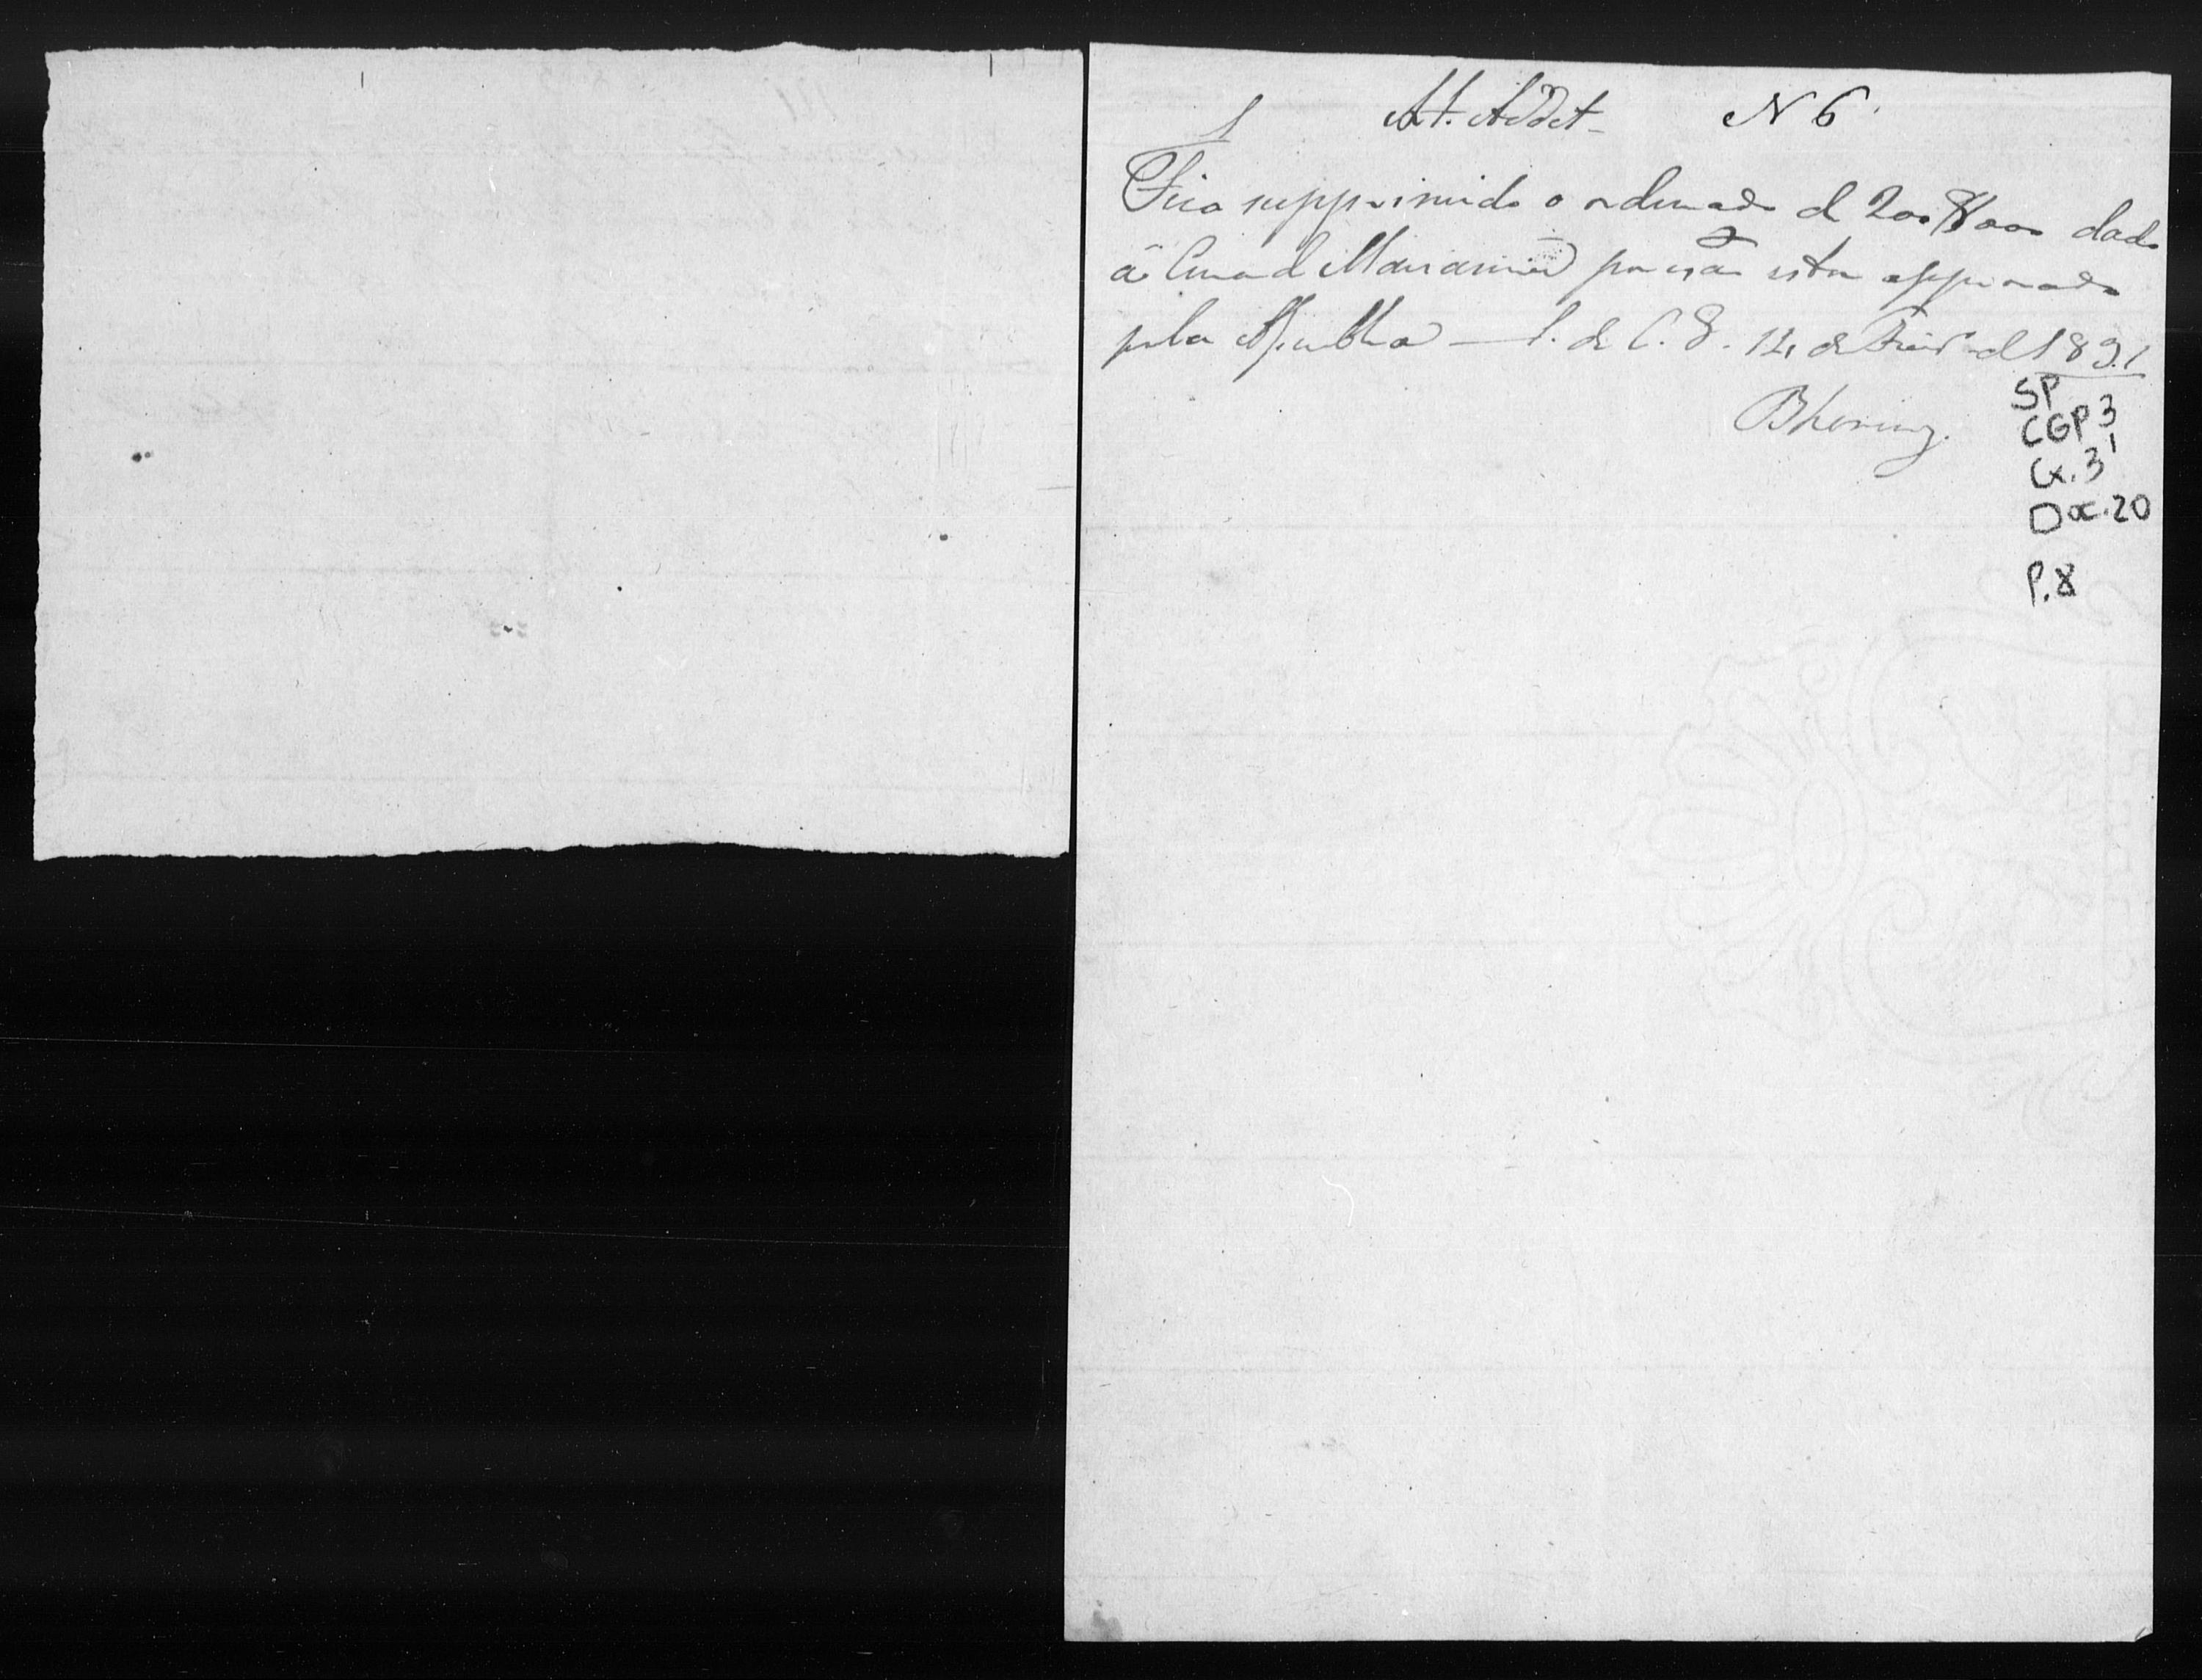 1 Art. Addit. N 6.
Fica supprimido o ordenado de 200$000 dado
ao Cura de Marianna por não estar approvado
pela Assemblea — S. de C. G. 14 de Fevr. de 1831
Bhering.
SP
CGP 3
Cx. 3
Doc. 20
P. 8